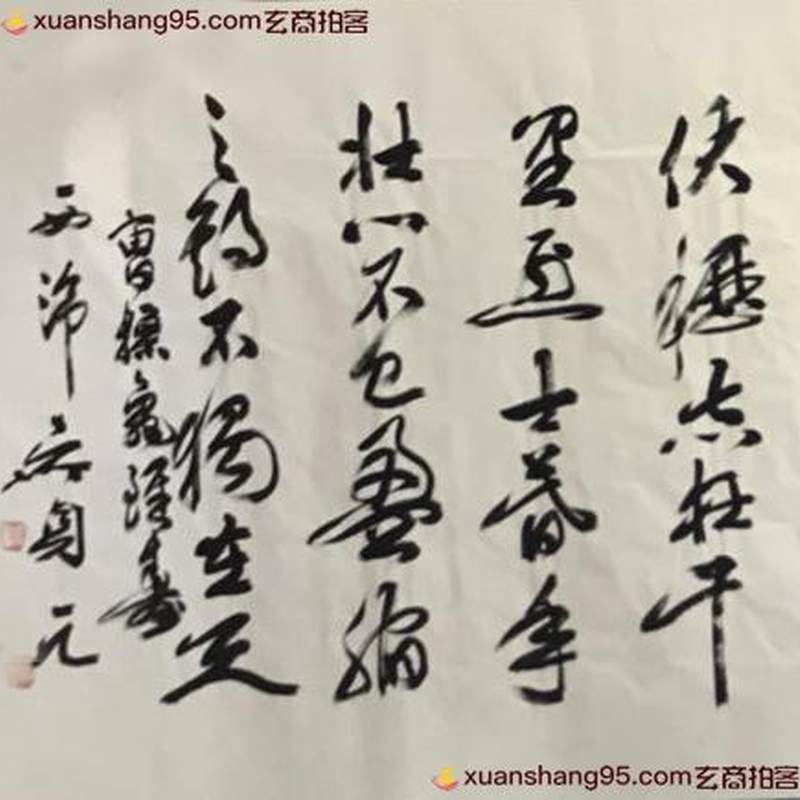 xuanshang95.com玄商拍客
伏櫪志在千
里烈士暮年
壯心不已盈縮
之期不獨在天
曹操龜雖壽
西泠
xuanshang95.com玄商拍客